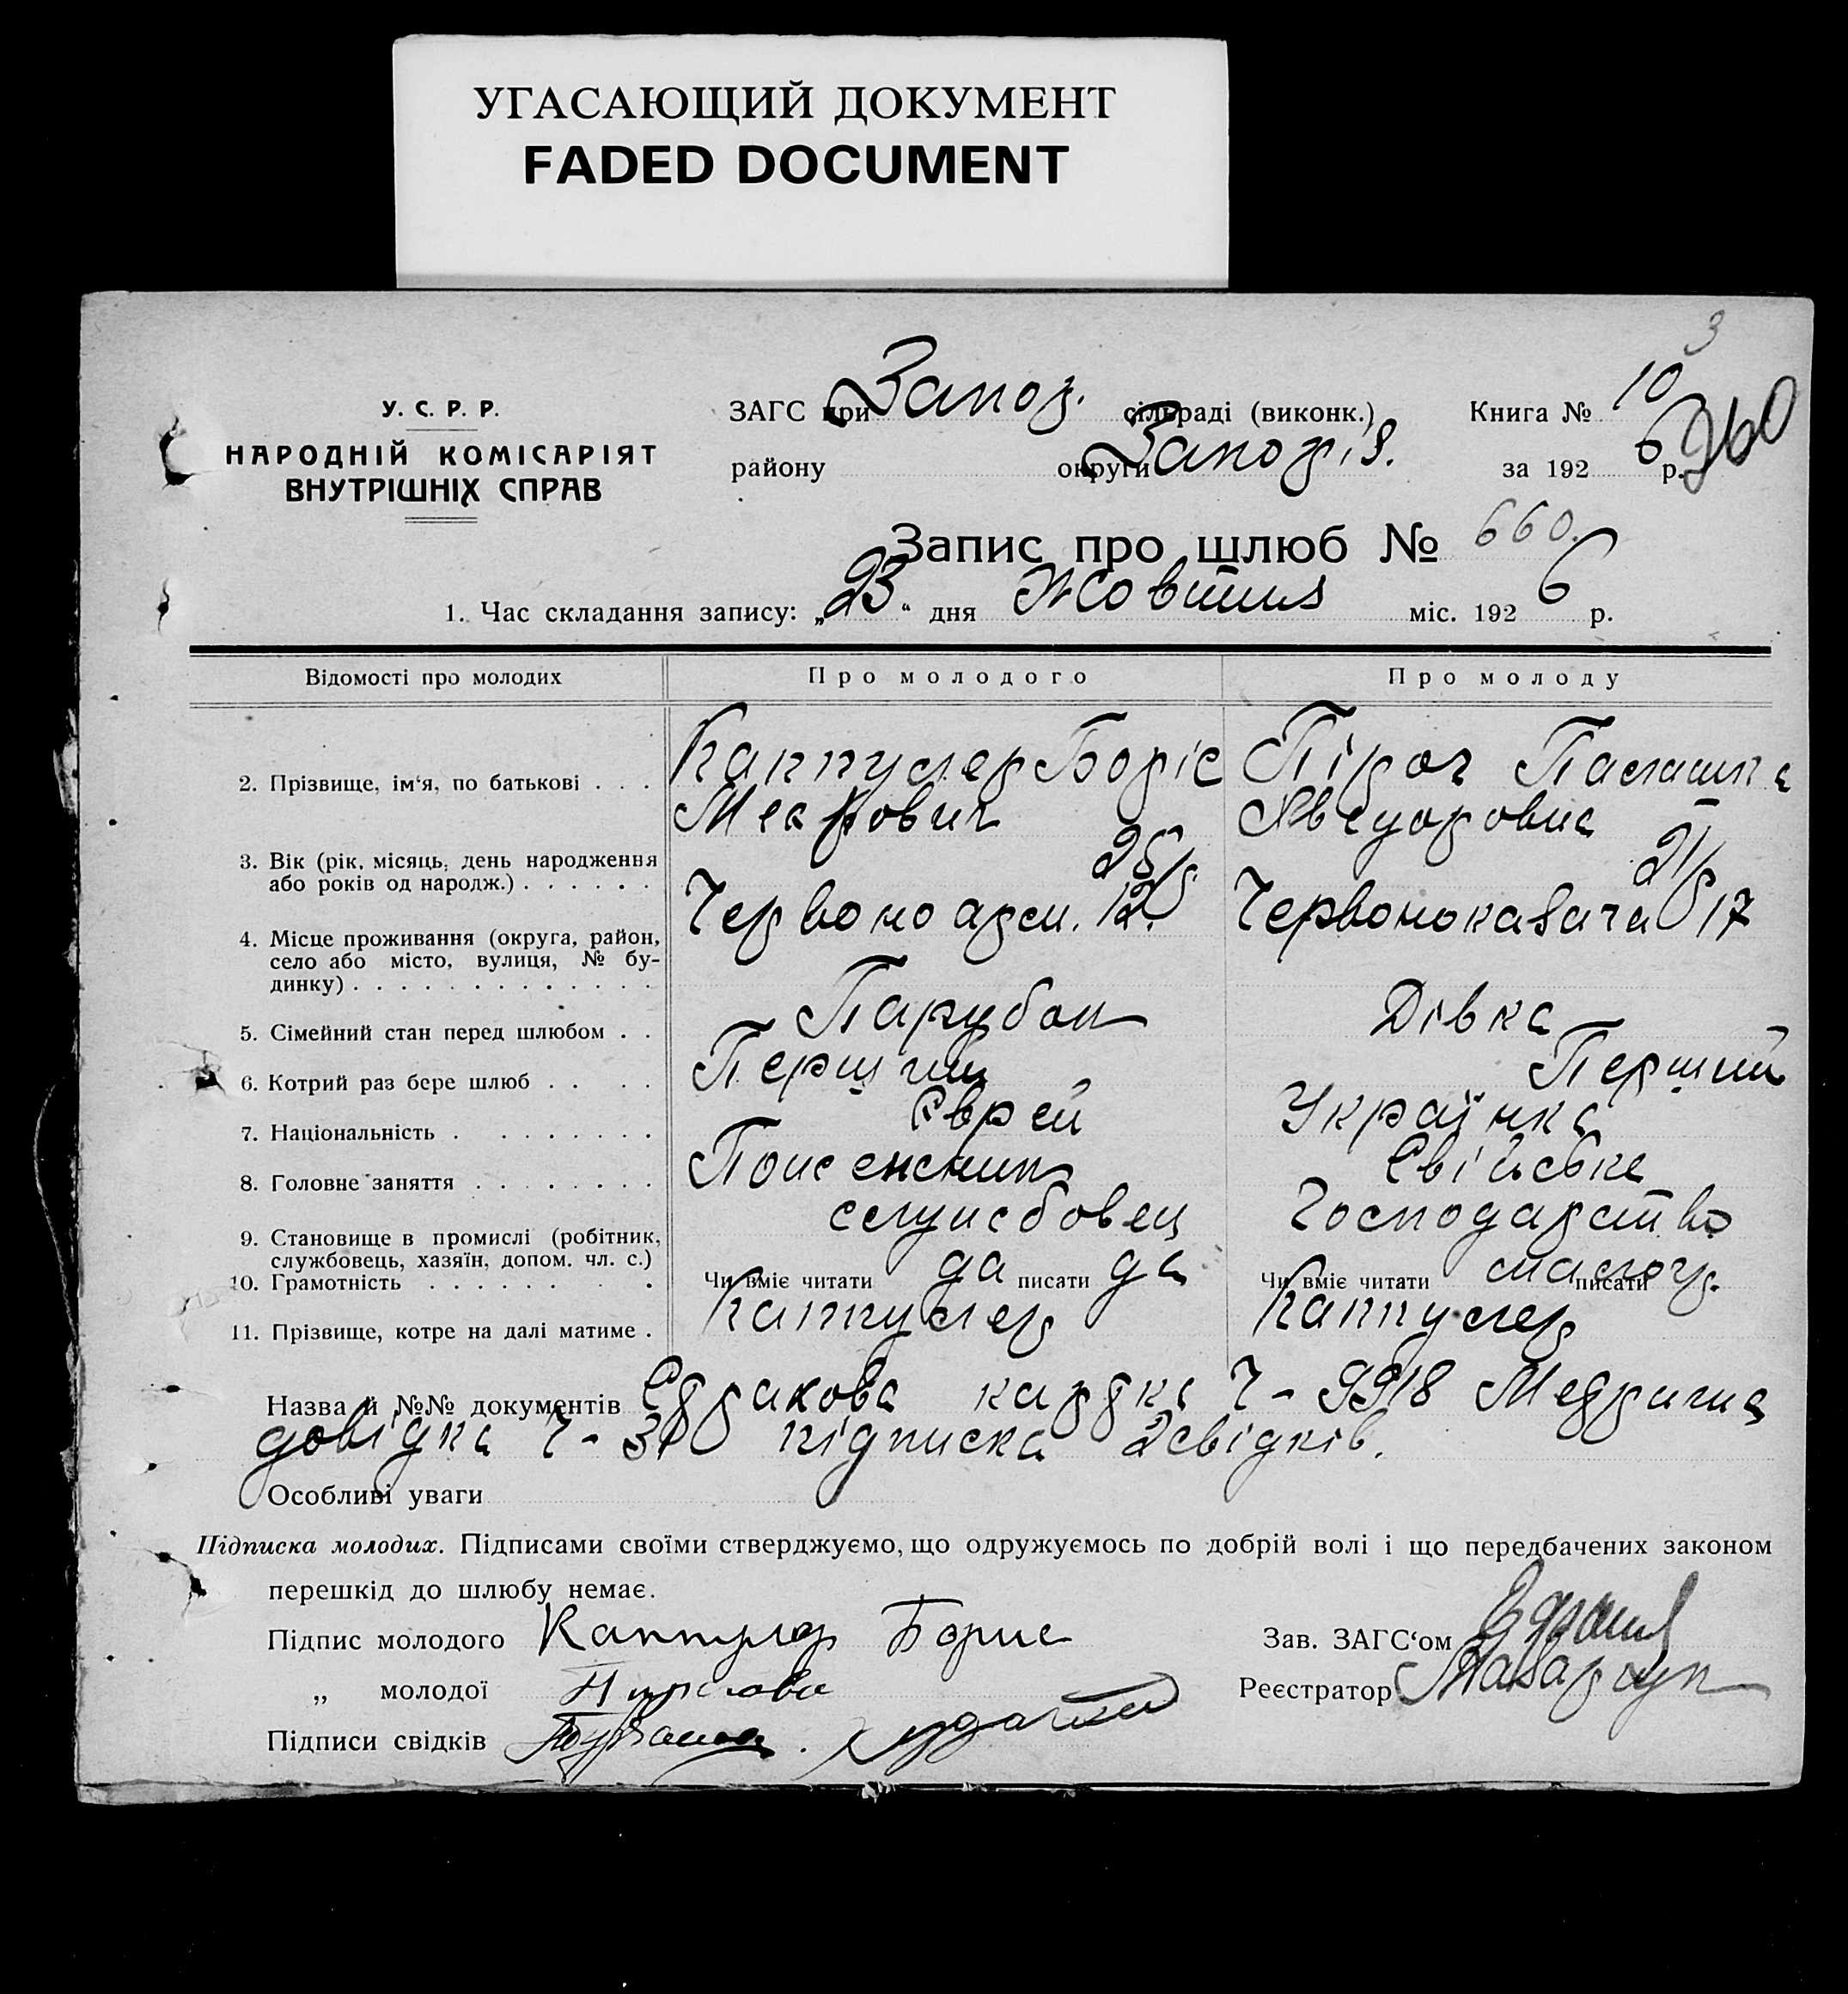 УГАСАЮЩИЙ ДОКУМЕНТ
FADED DOCUMENT
3
У. С. Р. Р.
НАРОДНІЙ КОМІСАРІЯТ
ВНУТРІШНІХ СПРАВ
ЗАГС при Запор. сільраді (виконк.) Книга № 10
району округи Запоріз. за 192 6 р. 260
Запис про шлюб № 660.
1. Час складання запису: „23“ дня Жовтня міс. 192 6 р.
Відомості про молодих Про молодого Про молоду
2. Прізвище, ім‘я, по батькові . . . Каппулер Боріс Пірог Палашка
3. Вік (рік, місяць, день народження або років од народж.) . . . . . . 25 21
4. Місце проживання (округа, район, село або місто, вулиця, № будинку) . . . . . . . . . . . . . Червоноарм. 12. Червоноказача 17
5. Сімейний стан перед шлюбом . . Парубок Дівка
6. Котрий раз бере шлюб . . . . Перший Перший
7. Національність . . . . . . . . Єврей Українка
8. Головне заняття . . . . . . . . Свійське
9. Становище в промислі (робітник, службовець, хазяїн, допом. чл. с.) службовец господарство
10. Грамотність . . . . . . . . Чи вміє читати да писати да Чи вміє читати писати
11. Прізвище, котре на далі матиме . Каппулер Каппулер
Назва й №№ документів картка Ч - 9918
довідка Ч - 31 підписка 2 свідків.
Особливі уваги
Підписка молодих. Підписами своїми стверджуємо, що одружуємось по добрій волі і що передбачених законом
перешкід до шлюбу немає.
Підпис молодого Каппулер Борис Зав. ЗАГС‘ом
„ молодої Пирогова Реєстратор
Підписи свідків